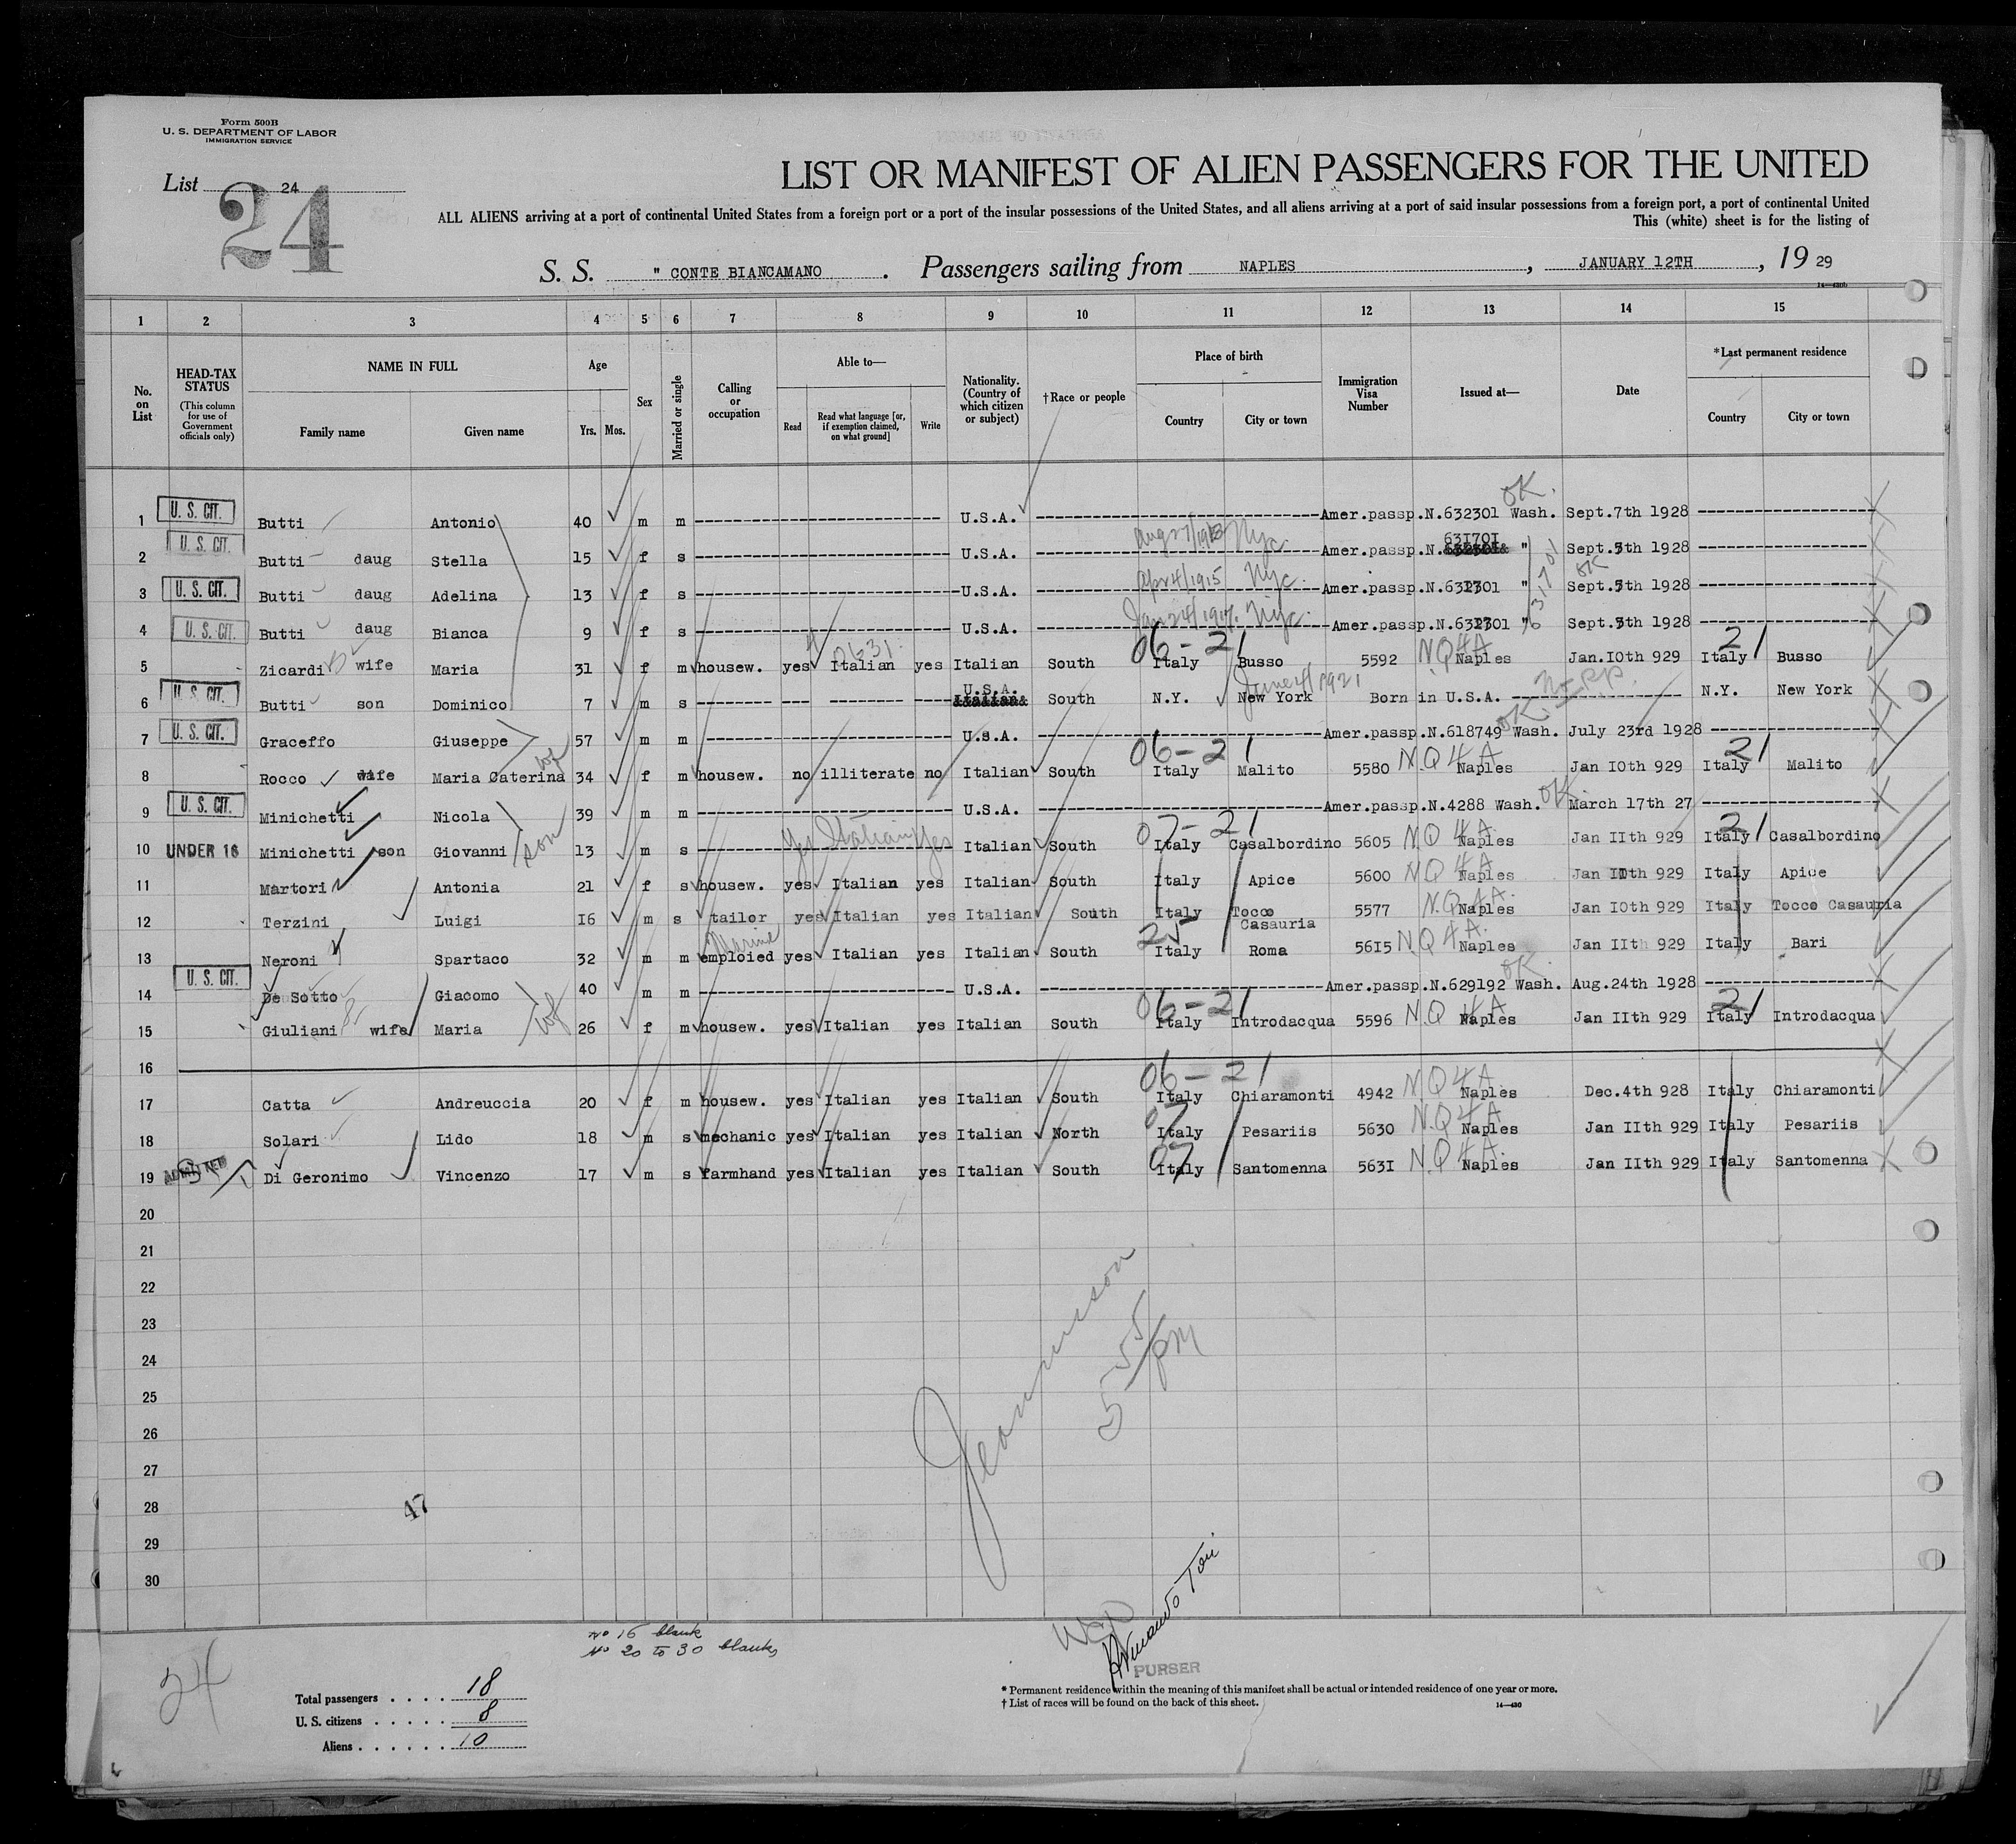 Form 500B
U. S. DEPARTMENT OF LABOR
IMMIGRATION SERVICE
List 24
24
LIST OR MANIFEST OF ALIEN PASSENGERS FOR THE UNITED
ALL ALIENS arriving at a port of continental United States from a foreign port or a port of the insular possessions of the United States, and all aliens arriving at a port of said insular possessions from a foreign port, a port of continental United
This (white) sheet is for the listing of
S. S. " CONTE BIANCAMANO . Passengers sailing from NAPLES , JANUARY 12TH , 19 29
14—430b
1 2 3 4 5 6 7 8 9 10 11 12 13 14 15
No. on List
HEAD-TAX STATUS (This column for use of Government officials only)
NAME IN FULL Family name Given name
Age Yrs. Mos.
Sex
Married or single
Calling or occupation
Able to— Read Read what language [or, if exemption claimed, on what ground] Write
Nationality. (Country of which citizen or subject)
†Race or people
Place of birth Country City or town
Immigration Visa Number
Issued at—
Date
*Last permanent residence Country City or town
1 U. S. CIT. Butti Antonio 40 m m U.S.A. Amer.passp.N.632301 Wash. OK. Sept.7th 1928
2 U. S. CIT. Butti daug Stella 15 f s U.S.A. Nyc. Amer.passp.N. 631701 " Sept.5th 1928
3 U. S. CIT. Butti daug Adelina 13 f s U.S.A. Apr 4/1915 Nyc. Amer.passp.N.631701 " 631701 OK Sept.5th 1928
4 U. S. CIT. Butti daug Bianca 9 f s U.S.A. Nyc. Amer.passp.N.631701 " Sept.5th 1928
5 Zicardi wife Maria 31 f m housew. yes Italian yes Italian South 06-21 Italy Busso 5592 NQ4A Naples Jan.10th 929 21 Italy Busso
6 U. S. CIT. Butti son Dominico 7 m s U.S.A. South N.Y. New York June 4/1921 Born in U.S.A. N.Y. New York
7 U. S. CIT. Graceffo Giuseppe 57 m m U.S.A. Amer.passp.N.618749 Wash. OK. July 23rd 1928
8 Rocco wife Maria Caterina wf 34 f m housew. no illiterate no Italian South 06-21 Italy Malito 5580 NQ4A Naples Jan 10th 929 21 Italy Malito
9 U. S. CIT. Minichetti Nicola 39 m m U.S.A. Amer.passp.N.4288 Wash. OK. March 17th 27
10 UNDER 16 Minichetti son Giovanni son 13 m s Yes Italian Yes Italian South 07-21 Italy Casalbordino 5605 NQ4A Naples Jan 11th 929 21 Italy Casalbordino
11 Martori Antonia 21 f s housew. yes Italian yes Italian South Italy Apice 5600 NQ4A Naples Jan 11th 929 Italy Apice
12 Terzini Luigi 16 m s tailor yes Italian yes Italian South Italy Tocco Casauria 5577 NQ4A. Naples Jan 10th 929 Italy Tocco Casauria
13 Neroni Spartaco 32 m m Marine emploied yes Italian yes Italian South 25 Italy Roma 5615 NQ4A. Naples Jan 11th 929 Italy Bari
14 U. S. CIT. De Sotto Giacomo 40 m m U.S.A. Amer.passp.N.629192 Wash. OK. Aug.24th 1928
15 Giuliani wife Maria wf 26 f m housew. yes Italian yes Italian South 06-21 Italy Introdacqua 5596 NQ4A Naples Jan 11th 929 21 Italy Introdacqua
16
17 Catta Andreuccia 20 f m housew. yes Italian yes Italian South 06-21 Italy Chiaramonti 4942 NQ4A Naples Dec.4th 928 Italy Chiaramonti
18 Solari Lido 18 m s mechanic yes Italian yes Italian North 07 Italy Pesariis 5630 NQ4A Naples Jan 11th 929 Italy Pesariis
19 ADMITTED Di Geronimo Vincenzo 17 m s farmhand yes Italian yes Italian South 07 Italy Santomenna 5631 NQ4A. Naples Jan 11th 929 Italy Santomenna
20
21
22
23
24
25
26
27
28
29
30
5 55/PM
47
No 16 blank
No 20 to 30 blank
24
Total passengers . . . . 18
U. S. citizens . . . . . 8
Aliens . . . . . . 10
PURSER
* Permanent residence within the meaning of this manifest shall be actual or intended residence of one year or more.
† List of races will be found on the back of this sheet.
14—430